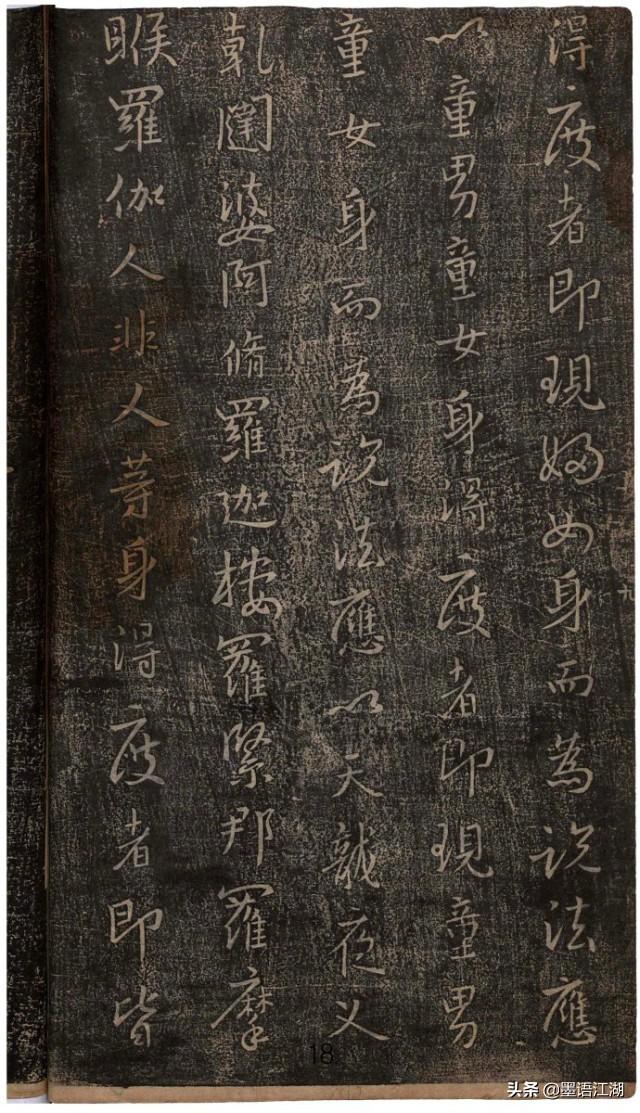 得度者即現婦女身而為說法應
以童男童女身得度者即現童男
童女身而為說法應以天龍夜叉
乾闥婆阿脩羅迦樓羅緊那羅摩
睺羅伽人非人等身得度者即皆
九
18
头条 @墨语江湖